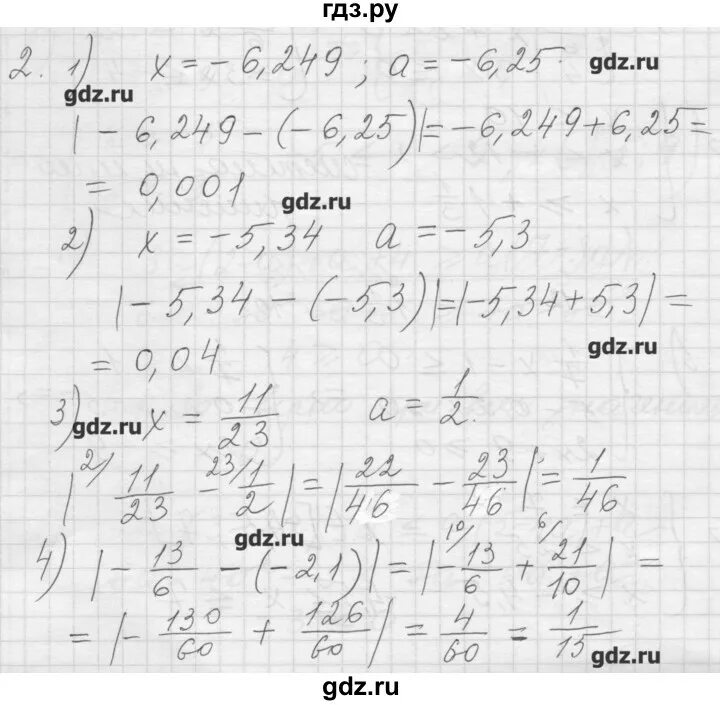 гдз.ру
2. 1) x = – 6,249 ; a = – 6,25. gdz.ru
gdz.ru
| – 6,249 – (– 6,25)| = – 6,249 + 6,25 =
= 0,001 gdz.ru
2) x = – 5,34 a = – 5,3
| – 5,34 – (– 5,3)| = |– 5,34 + 5,3| =
= 0,04 gdz.ru
3) gdz.ru x = 11/23 a = 1/2.
| 2/ 11/23 – 23/ 1/2 | = | 22/46 – 23/46 | = 1/46
gdz.ru
4) | – 13/6 – (– 2,1) | = | – 10/ 13/6 + 6/ 21/10 | =
= | – 130/60 + 126/60 | = 4/60 = 1/15 gdz.ru
gdz.ru